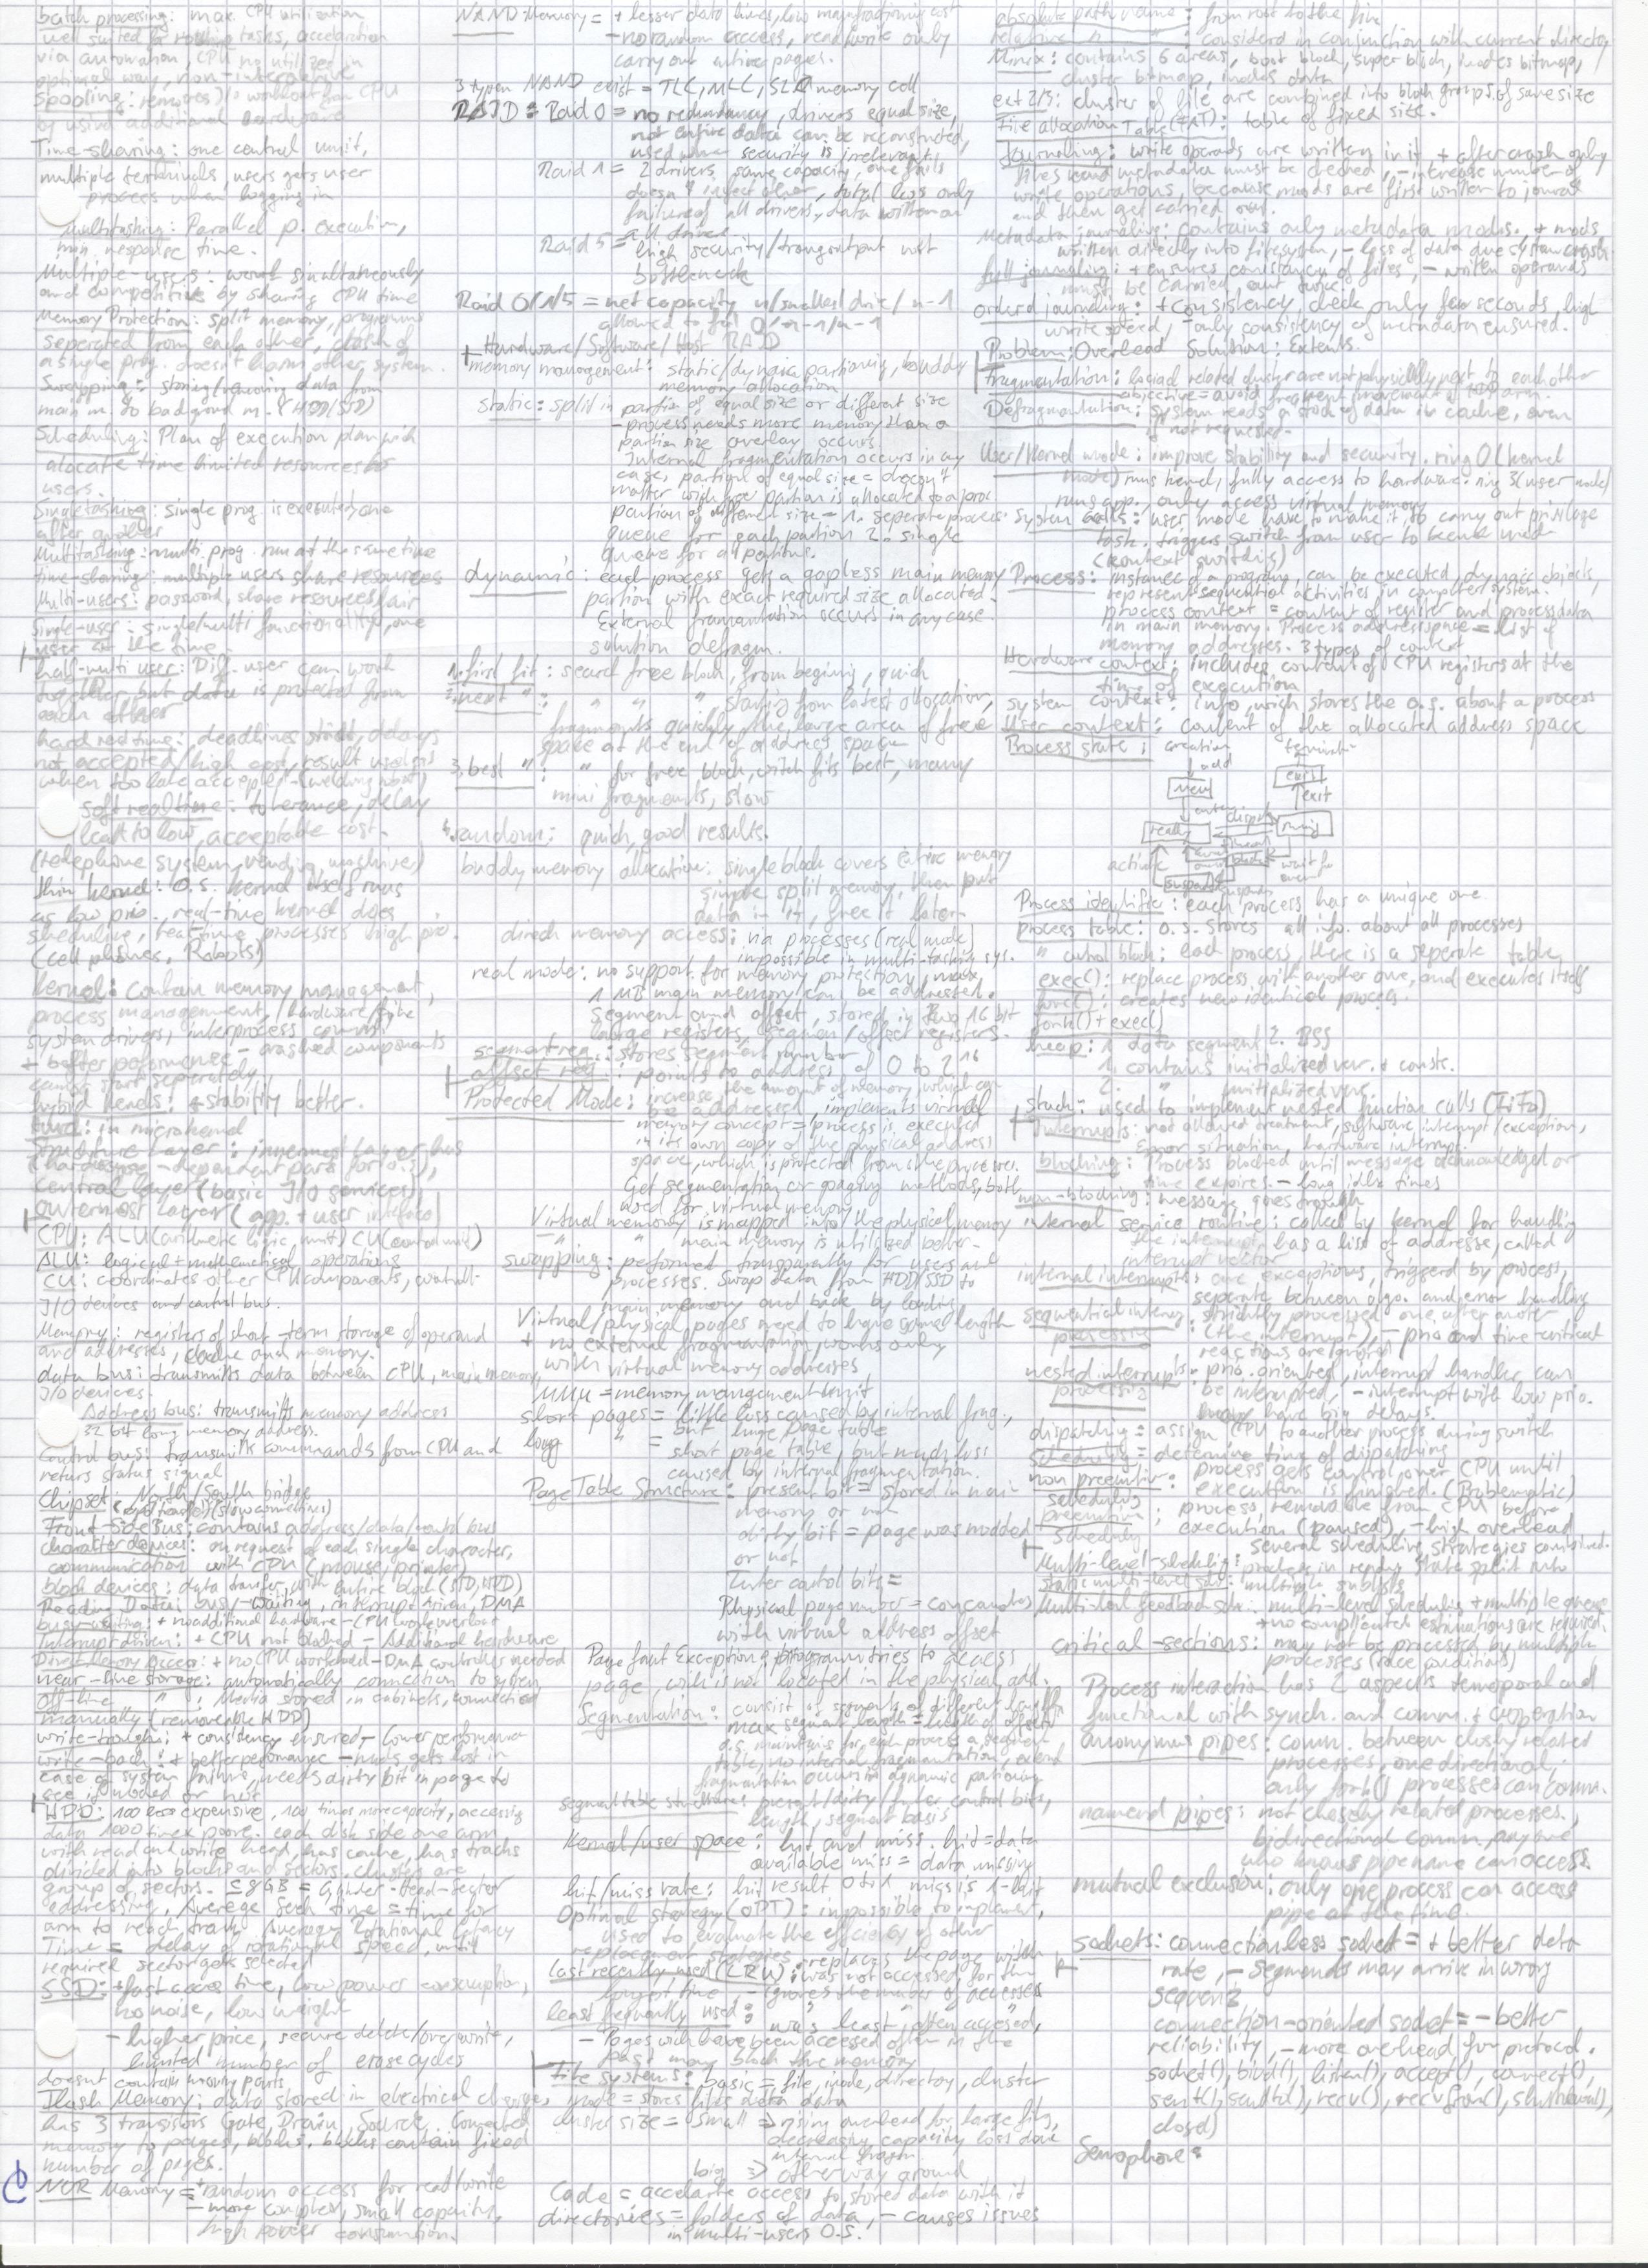 batch processing: max. CPU utilization
well suited for routing tasks, acceleration
via automation, CPU no utilized in
optimal way, non-interactive
Spooling: removes I/O workload from CPU
by using additional hardware
Time-sharing: one central unit,
multiple terminals, users gets user
process when logging in
Multitasking: Parallel p. execution,
min. response time.
Multiple-users: work simultaneously
and competitive by sharing CPU time
Memory Protection: split memory, programs
seperated from each other, crash of
a single prog. doesn't harm other system.
Swapping: storing/removing data from
main m. to background m. (HDD/SSD)
Scheduling: Plan of execution plan wich
alocate time limited resources to
users.
Singletasking: single prog. is executed, one
after another
Multitasking: multi prog. run at the same time
time-sharing: multiple users share resources
Multi-users: password, share resources fair
Single-user: single/multi functionality, one
user at the time.
half-multi user: Diff. user can work
together, but data is protected from
each other
hard realtime: deadlines strict, delays
not accepted, high cost, result useless
when too late accepted (welding robot)
soft realtime: tolerance, delay
lead to low, acceptable cost.
(telephone system, vending machines)
thin kernel: O.S. kernel itself runs
as low prio., real-time kernel does
scheduling, real-time processes high prio.
(cell phones, Robots)
kernel: contain memory management,
process management, hardware/file
system drivers, interprocess comm.
+ better performance, - crashed components
cannot start separately,
hybrid kernels: + stability better.
in microkernel
Structure layer: innermost layer has
(hardware-dependent parts for o.s.),
central layer (basic I/O services),
outermost layer (app. + user interface)
CPU: ALU (arithmetic logic unit) CU (control unit)
ALU: logical + mathematical operations
CU: coordinates other CPU components, controll-
I/O devices and control bus.
Memory: registers of short-term storage of operand
and addresses, cache and memory.
data bus: transmitts data between CPU, main memory,
I/O devices.
Address bus: transmitts memory address
32 bit long memory address.
Control bus: transmitts commands from CPU and
return status signal
Chipset: North/South bridge
Front-Side Bus: contains address/data/control bus
character devices: on request of each single character,
communication with CPU (mouse, printer)
block devices: data transfer with entire block (SSD, HDD)
Reading Data: busy-waiting, interrupt driven, DMA
busy-waiting: + no additional hardware - CPU work overload
Interrupt driven: + CPU not blocked - Additional hardware
Direct Memory Access: + no CPU workload - DMA controller needed
near-line storage: automatically connection to system
off-line " : Media stored in cabinets, connected
manually (removeable HDD)
write-trough: + consistency ensured, - Lower performance
write-back: + better performance - mods gets lost in
case of system failure, needs dirty bit in page to
see if modded or not
HDD: 100 less expensive, 100 times more capacity, accessing
data 1000 times poore. each disk side one arm
with read and write head, has cache, has tracks
divided into blocks and sectors. clusters are
group of sectors. ≤ 8GB = Cylinder-Head-Sector
addressing, Average Seek time = time for
arm to reach track, Average Rotational Latency
Time = delay of rotational speed, until
required sector gets selected
SSD: + fast access time, low power consumption,
no noise, low weight
- higher price, secure delete/overwrite,
limited number of erase cycles
doesnt contain moving parts
Flash Memory: data stored in electrical charge,
has 3 transistors Gate, Drain, Source. Connected
memory to pages, blocks. blocks contain fixed
number of pages.
NOR Memory = + random access for read/write
- more complex, small capacity,
high power consumtion.
NAND-Memory = + lesser data lines, low manufractioning cost
- no random access, read/write only
carry out entire pages.
3 types NAND exist = TLC, MLC, SLC memory cell
RAID: Raid 0 = no redundancy, drivers equal size,
not entire data can be reconstructed,
used when security is irrelevant
Raid 1 = 2 drivers, same capacity, one fails
doesn't infect other, total loss only
failure of all drivers, data written on
all drives
Raid 5 = high security/trougoutput not
bottleneck
Raid 0/1/5 = net capacity n/smallest drive/n-1
allowed to fail 0/n-1/n-1
Hardware/Software/Host RAID
memory management: static/dynamic partioning, buddy
memory allocation
static: split in partion of equal size or different size
- process needs more memory than a
partion size overlay occurs.
Internal fragmentation occurs in any
case, partions of equal size = doesn't
matter wich free partion is allocated to a proc.
partion of different size = 1. seperate process
queue for each partion 2. single
queue for all partions.
dynamic: each process gets a gapless main memory
partion with exact required size allocated.
External framantation occurs in any case.
solution defragm.
1. first fit: search free block, from begining, quick
2. next " : " " starting from latest allocation,
fragments quickly the large area of free
space at the end of address space
3. best " : " for free block, witch fits best, many
mini fragments, slow
4. random: quick, good results.
buddy memory allocation: single block covers entire memory
simple split memory, then put
data in it, free it later.
direct memory access: via processes (real mode)
impossible in multi-tasking sys.
real mode: no support for memory protection, max.
1 MB main memory can be addressed.
Segment and offset, stored in two 16 bit
large registers, Segmen/offset registers.
segment reg.: stores segment number
offset reg.: points to address of 0 to 2^16
Protected Mode: increase the amount of memory, which can
be addressed, implements virtual
memory concept = process is executed
in its own copy of the physical address
space, which is protected from other processes.
Get segmentation or paging methods, both
used for virtual memory
Virtual memory is mapped into the physical memory
" " main memory is utilized better.
swapping: performed transparently for users and
processes. Swap data from HDD/SSD to
main memory and back by loading
Virtual/physical pages need to have same length
+ no external fragmentation, works only
with virtual memory addresses
MMU = memory management unit
short pages = little loss caused by internal frag.,
but huge page table
long " = short page table, but much loss
caused by internal fragmentation.
Page Table Structure: present bit = stored in main
memory or not
dirty bit = page was modded
or not
Further control bits =
Physical page number = concanates
with virtual address offset
Page fault Exception: programm tries to access
page, wich is not located in the physical add.
Segmentation: consist of segments of different length
max segment length = length of offset
o.s. maintains for each process a segment
table, no internal fragmentation, extend
fragmentation occurs in dynamic partioning
segment table structure: present/dirty/further control bits,
length, segment basis
Kernel/user space: hit and miss. hit = data
available miss = data missing
hit/miss rate: hit result 0 to 1 miss is 1-hit
Optimal strategy (OPT): impossible to implement,
used to evaluate the efficiency of other
replacement strategies
last recently used (LRU): replaces the page wich
was not accessed for the
longest time, - ignores the number of accesses
least frequently used: " was least often accessed,
- Pages wich have been accessed often in the
past may block the memory
File systems: basic = file, inode, directory, cluster
inode = stores files meta data
cluster size = small => rising overhead for large files,
decreasing capacity loss due
internal fragm.
big => other way around
Cache = accelarte access to stored data with it
directories = folders of data, - causes issues
in multi-users O.S.
absolute path name: from root to the file
relative " " : considerd in conjunction with current directory
Minix: contains 6 areas, boot block, super block, inodes bitmap,
cluster bitmap, inodes data
ext 2/3: cluster of file are combined into block groups of same size
File allocation Table (FAT): table of fixed size.
Journaling: write operads are written in it, + after crash only
files and metadata must be checked, - increase number of
write operations, because mods are first written to journal
and then get carried out.
Metadata journaling: contains only metadata mods. + mods
written directly into filesystem, - loss of data due system crash
full journaling: + ensures consistancy of files, - written operands
must be carried out twice.
orderd journaling: + consistency check only few seconds, high
write speed, - only consistency of metadata ensured.
Problem: Overhead Solution: Extents.
fragmentation: logical related cluster are not physically next to each other
objective = avoid frequent movement of HDD arm.
Defragmentation: system reads a stock of data in cache, even
if not requested.
User/Kernel mode: improve stability and security. ring 0 (kernel
mode) runs kernel, fully access to hardware. ring 3 (user mode)
runs app., only access virtual memory
System calls: user mode have to make it, to carry out privilage
task. triggers switch from user to kernel mode
(context switching)
Process: instance of a programm, can be executed, dynamic objects,
represent sequential activities in computer system.
process context = content of register and process data
in main memory. Process address space = list of
memory addresses. 3 types of context
Hardware context: includes content of CPU registers at the
time of execution
system context: info wich stores the o.s. about a process
User context: content of the allocated address space
Process state: creation
termination
new
exit
exit
ready
running
activate
suspend
wait for
event
Process identifier: each process has a unique one
process table: o.s. stores all info. about all processes
" control block: each process, there is a seperate table
exec(): replace process with another one, and executes itself
fork(): creates new identical process.
fork() + exec()
heap: 1. data segment 2. BSS
1. contains initialized var. + consts.
2. " unitialized var.
Stack: used to implement nested function calls (LIFO)
Interrupts: not allowed treatment, software interrupt/exception,
Error situation, hardware interrupt.
blocking: Process blocked until message acknowledged or
time expires. - long idle times
non-blocking: message goes trough
internal service routine: called by kernel for handling
the interrupt, has a list of addresse, called
interrupt vector
internal interrupts: are exceptions, triggerd by process,
separate between algo. and error handling
sequential interrup. processing: strictly processed one after another
(the interrupt), - prio and time-critical
reactions are ignored
nested interrupts processing: prio. oriented, interrupt handler can
be interrupted, - interrupt with low prio.
may have big delays.
dispatching = assign CPU to another process during switch
Scheduling = determine time of dispatching
non preemtive scheduling: process gets control over CPU until
execution is finished. (Problematic)
preemtive scheduly: process removable from CPU before
execution (paused), - high overhead
several scheduling strategies combined.
Multi-level-scheduling: process in ready state split into
static multi-level sch.: multiple sublists
Multi-level feedback sch.: multi-level scheduling + multiple queues
+ no complicate estimations are required
critical-sections: may not be processed by multiple
processes (race conditions)
Process interaction has 2 aspects temoporal and
functional with synch. and comm. + cooperation
anonymus pipes: comm. between closly related
processes, one directional,
only fork() processes can comm.
namend pipes: not closely related processes,
bidirectional comm. anyone
who knows pipe name can access.
mutual exclusion: only one process can access
pipe at the time.
sockets: connectionless socket = + better data
rate, - Segments may arrive in wrong
sequenz
connection-oriented socket = - better
reliability, - more overhead for protocol.
socket(), bind(), listen(), accept(), connect(),
sent(), sendto(), recv(), recvfrom(), shutdown(),
close()
Semaphore: